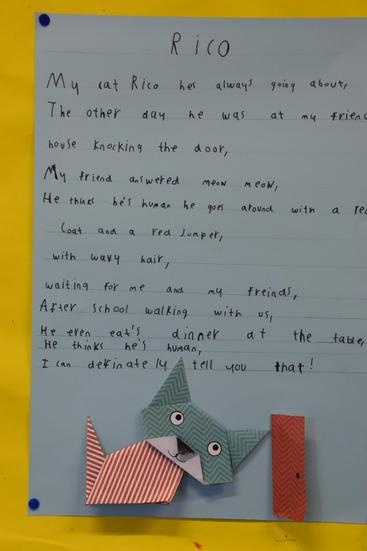 Rico
My cat Rico hes always going about,
The other day he was at my friend
house knocking the door,
My friend answered meow meow,
He thinks he's human he goes around with a red
Coat and a red Jumper,
with wavy hair,
waiting for me and my freinds,
After school walking with us,
He even eat's dinner at the table,
He thinks he's human,
I can definately tell you that!